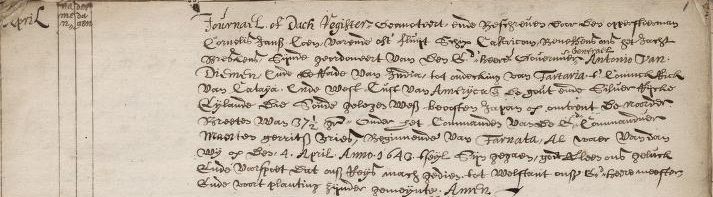 April
Journael of Dach Register Gehouden ende Beschreven door den opperstierman
Cornelis Jansz Coen, varende opt fluijt Schip Castricom, Benessens ons het Jacht
Breskens, Sijnde geordonneert van den Ed. heere Gouverneur Generael Antonio van
Diemen, Ende de Raden van India, tot ontdecking van Tartaria, 't Coninckrijck
van Cataya, Ende West Cust van America, Ende de gout ende Silver Rijcke
Eijlanden, die Soude gelegen wesen beoosten Japan op ontrent de noorder
Breete van 37½ gr. Onder het Commando van de E. Commandeur
Maerten Gerritsz Vries, Beginnende van Tarnata, Al waer van dan
wij op den 4 April Anno 1643 t'seijl Sijn gegaen, godt verleen ons geluck
Ende voorspoet dat onse Reijs mach gedien tot welstant onser Ed. heeren meesters
Ende voort planting sijnder gemeijnte. Amen